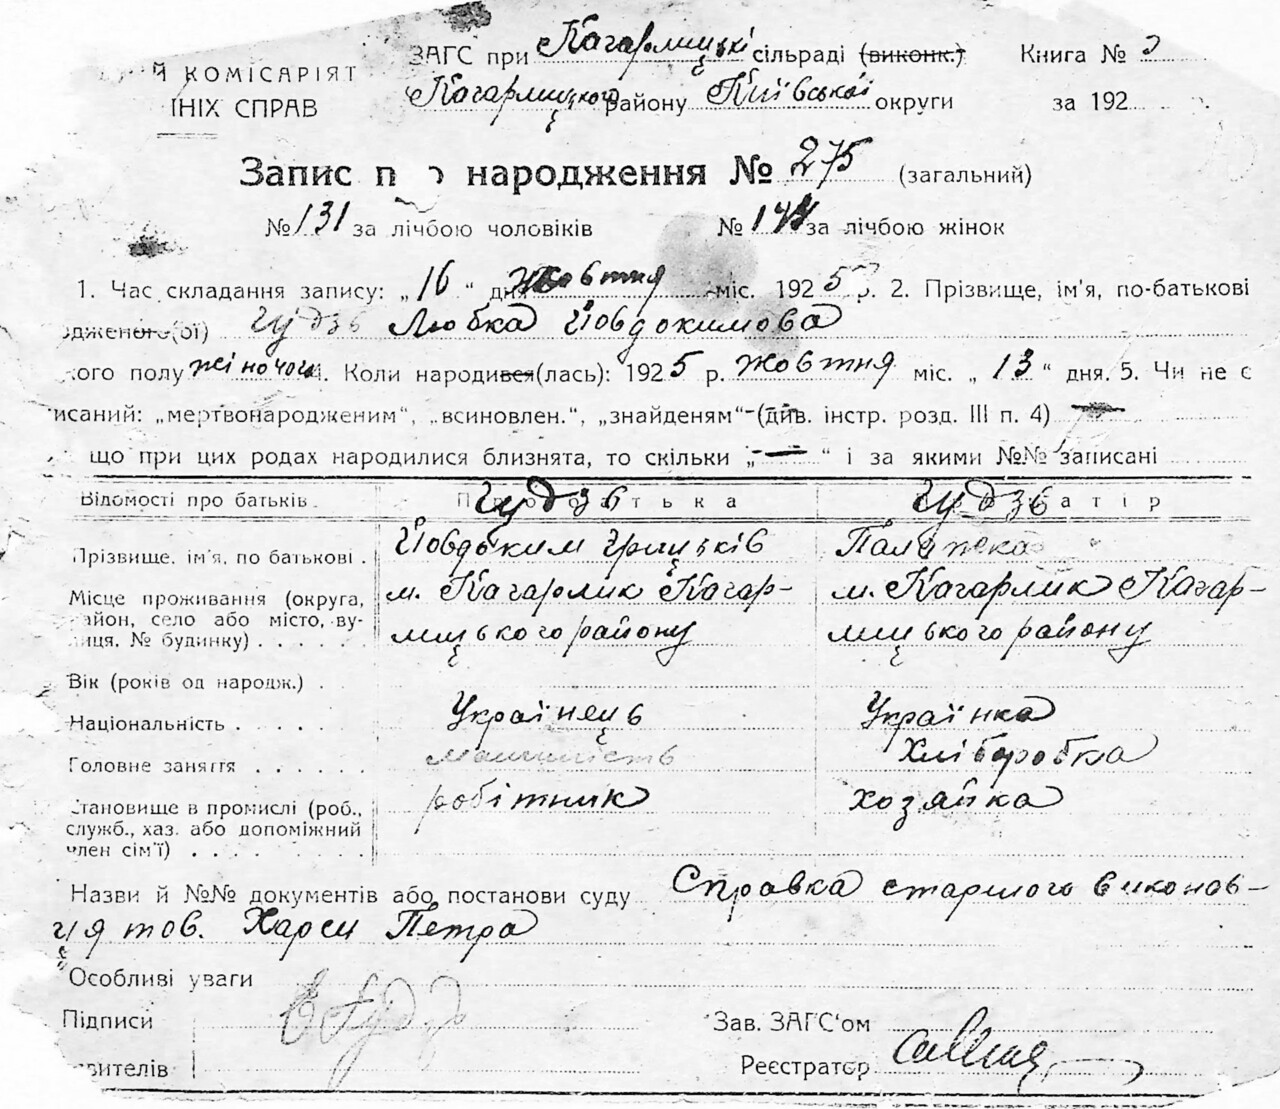 Й КОМІСАРІЯТ
ІНІХ СПРАВ
ЗАГС при Кагарлицькі сільраді (виконк.) Книга №
Кагарлицького району Київської округи за 192
Запис про народження № 275 (загальний)
№ 131 за лічбою чоловіків № 144 за лічбою жінок
1. Час складання запису: „16“ дня жовтня міс. 1925 р. 2. Прізвище, ім'я, по-батькові
одженого(ої) Гудзь Любка Йовдокимова
кого полу жіночого. Коли народився(лась): 1925 р. жовтня міс. „13“ дня. 5. Чи не є
писаний: „мертвонародженим“, „всиновлен.“, „знайденям“ (див. інстр. розд. III п. 4) —
що при цих родах народилися близнята, то скільки „—“ і за якими №№ записані
Відомості про батьків. Про батька Гудзь Гудзь матір
Прізвище, ім'я, по батькові . Йовдоким Грицьків Палажка
Місце проживання (округа, м. Кагарлик Кагар- м. Кагарлик Кагар-
район, село або місто, ву-
лиця, № будинку) . . . . . лицького району лицького району
Вік (років од народж.) .
Національність . . . . . Українець Українка
Головне заняття . . . . . . машиність Хліборобка
Становище в промислі (роб., робітник хозяйка
служб., хаз. або допоміжний
член сім'ї) . . . . . . . .
Назви й №№ документів або постанови суду Справка старшого виконав-
ця тов. Харси Петра
Особливі уваги
Підписи Зав. ЗАГС'ом
явителів Реєстратор